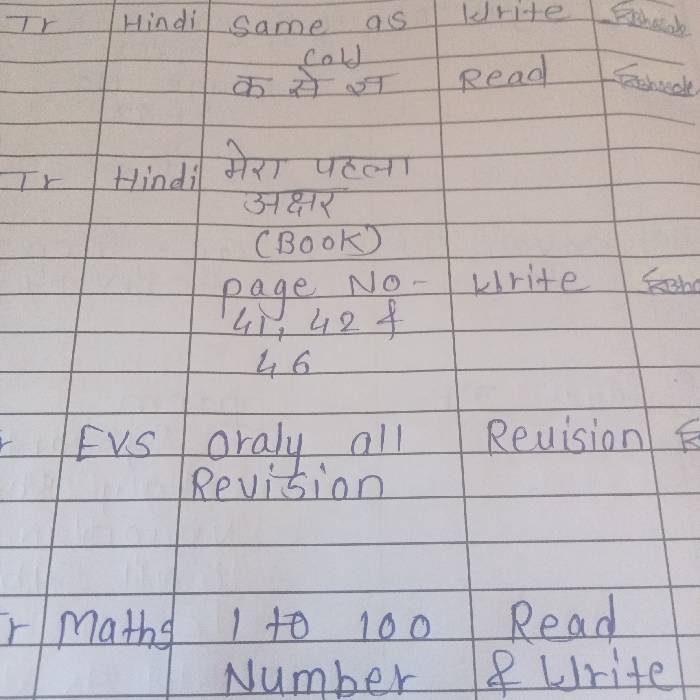 Tr Hindi Same as Write
Cold
क से ज्ञ Read
Tr Hindi मेरा पहला
अक्षर
(Book)
page No- Write
41, 42 &
46
EVS oraly all Revision
Revision
Tr Maths 1 to 100 Read
Number & Write